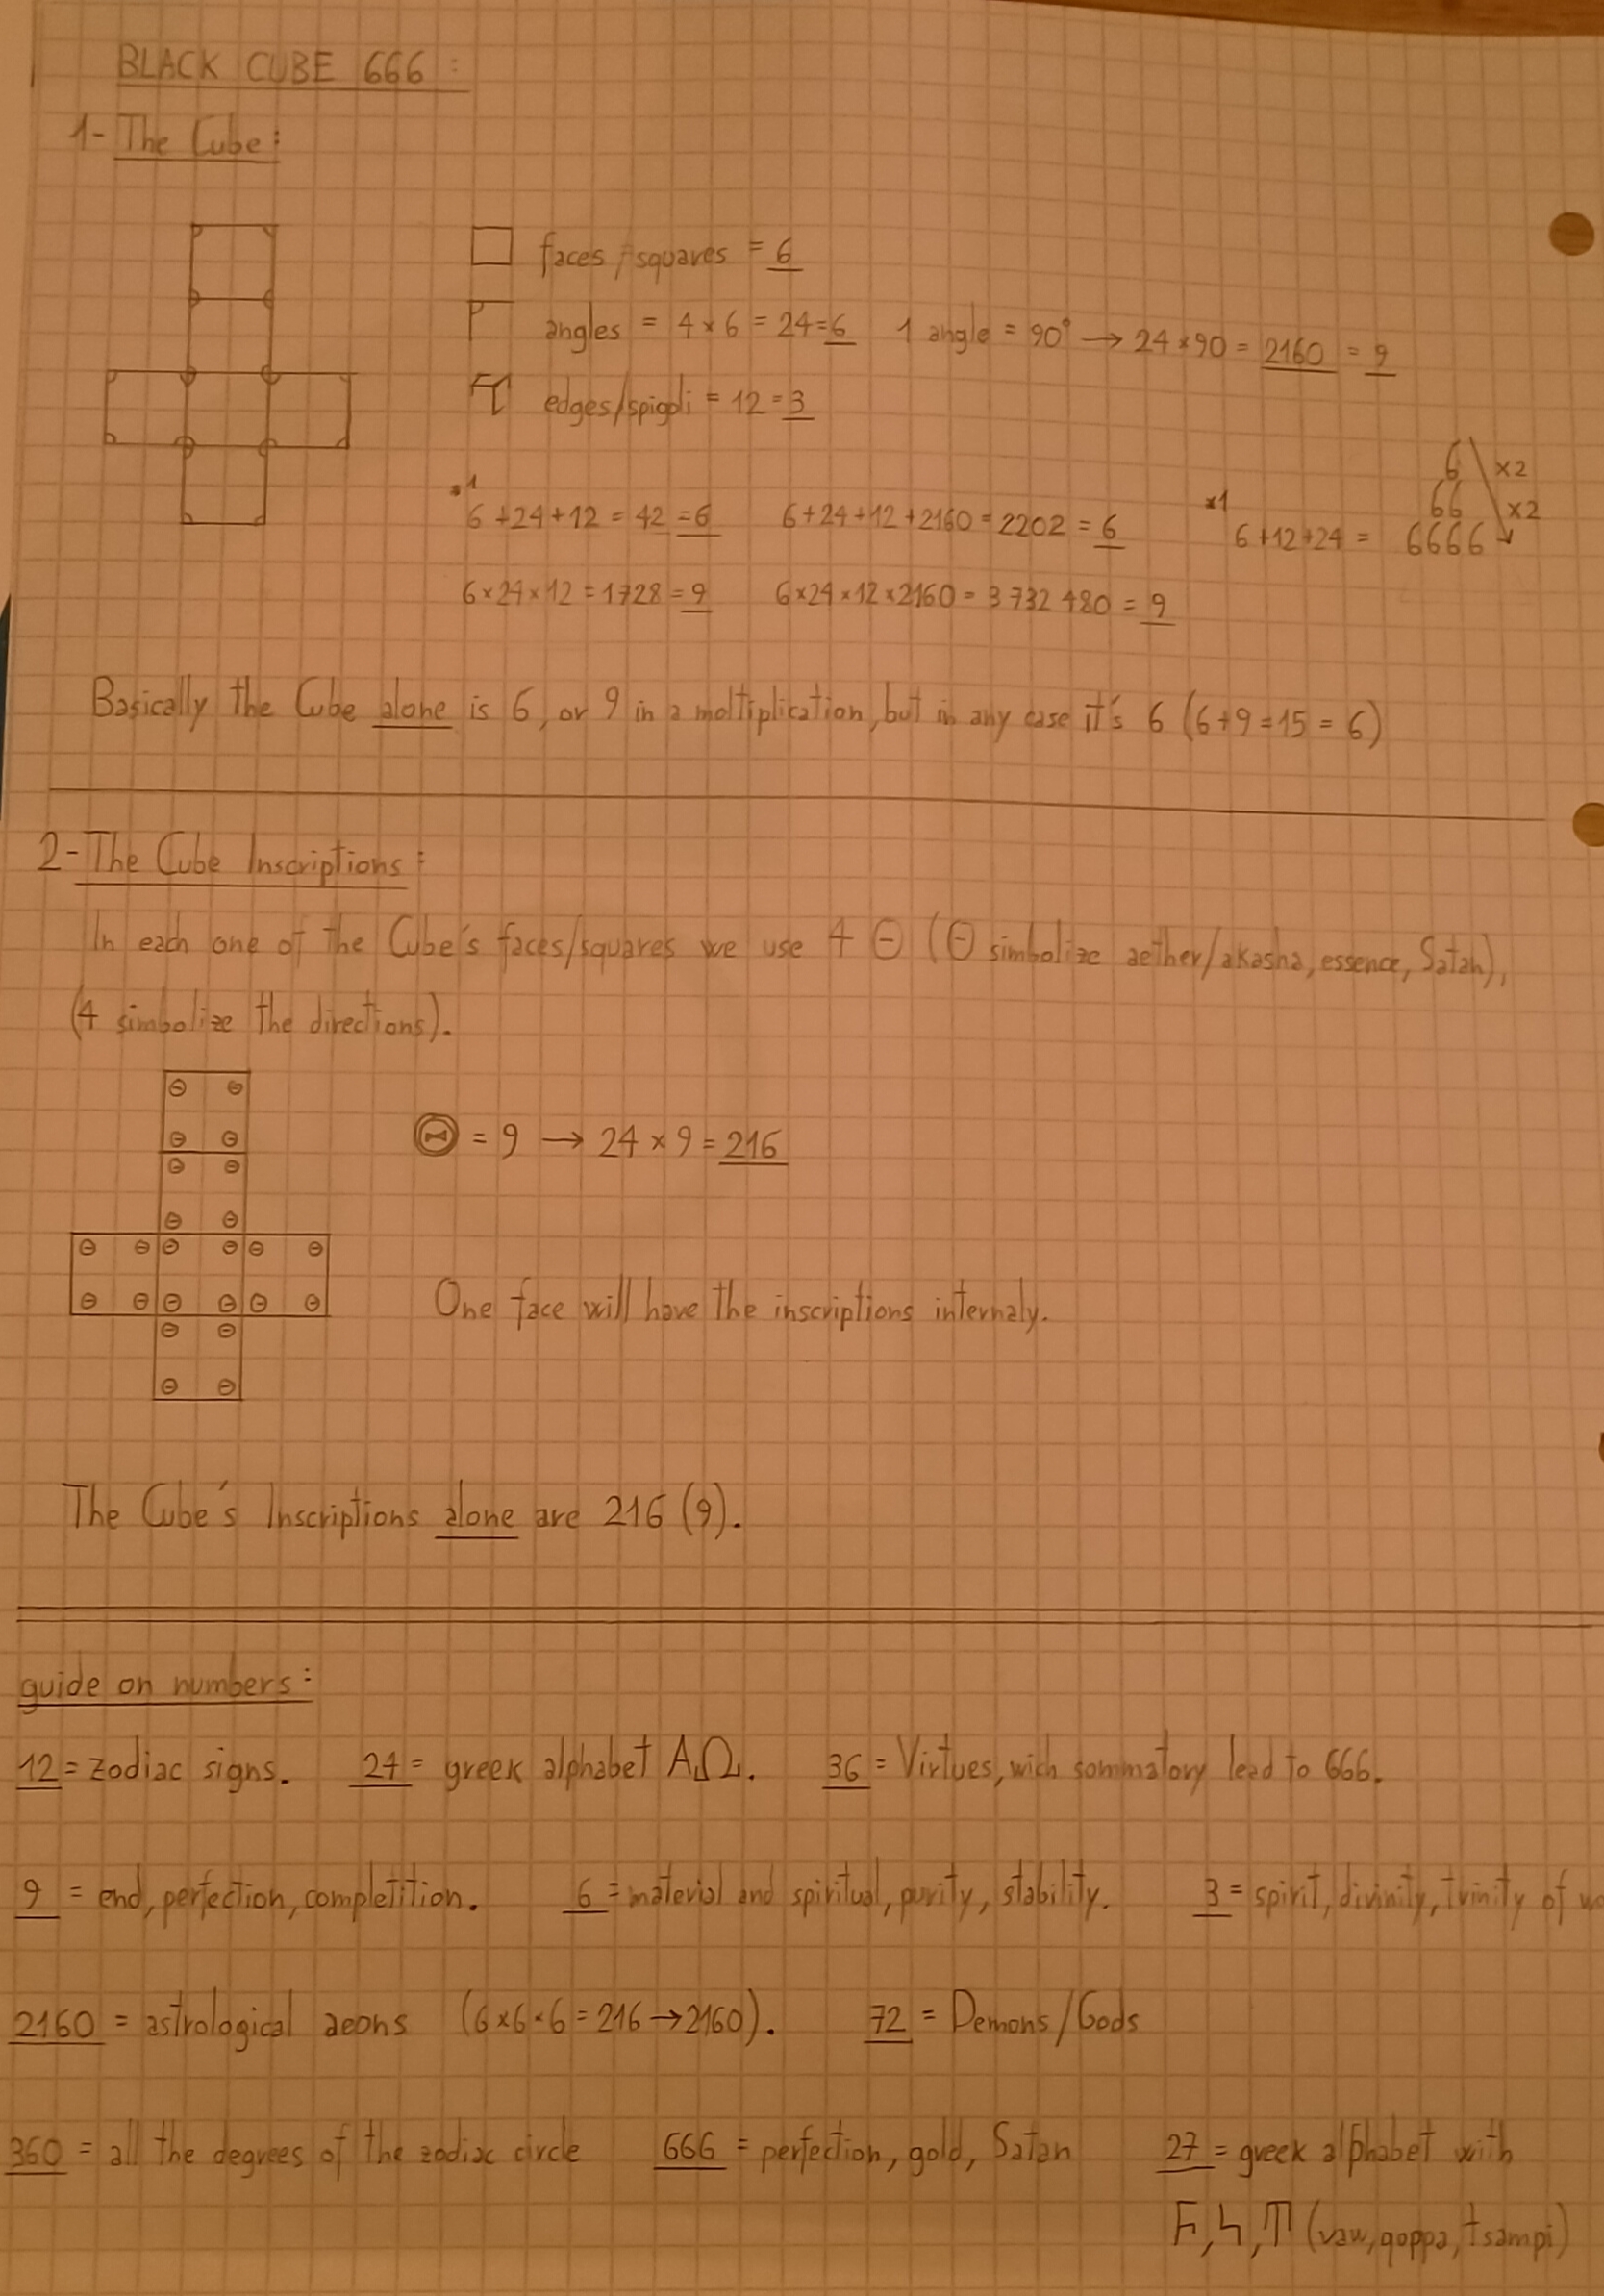 BLACK CUBE 666 :
1- The Cube :
faces / squares = 6
angles = 4 × 6 = 24 = 6 1 angle = 90° → 24 × 90 = 2160 = 9
edges/spigoli = 12 = 3
*1 6 + 24 + 12 = 42 = 6 6 + 24 + 12 + 2160 = 2202 = 6 *1 6 + 12 + 24 =
6 ×2
66 ×2
6666
6 × 24 × 12 = 1728 = 9 6 × 24 × 12 × 2160 = 3 732 480 = 9
Basically the Cube alone is 6, or 9 in a moltiplication, but in any case it's 6 (6 + 9 = 15 = 6)
2- The Cube Inscriptions :
In each one of the Cube's faces/squares we use 4 Θ (Θ simbolize aether/akasha, essence, Satan),
(4 simbolize the directions).
Θ = 9 → 24 × 9 = 216
One face will have the inscriptions internaly.
The Cube's Inscriptions alone are 216 (9).
guide on numbers :
12 = zodiac signs. 24 = greek alphabet ΑΩ. 36 = Virtues, wich sommatory lead to 666.
9 = end, perfection, completition. 6 = material and spiritual, purity, stability. 3 = spirit, divinity, trinity of
2160 = astrological aeons (6 × 6 × 6 = 216 → 2160). 72 = Demons/Gods
360 = all the degrees of the zodiac circle 666 = perfection, gold, Satan 27 = greek alphabet with
Ϝ, Ϟ, Ͳ (vaw, qoppa, tsampi)